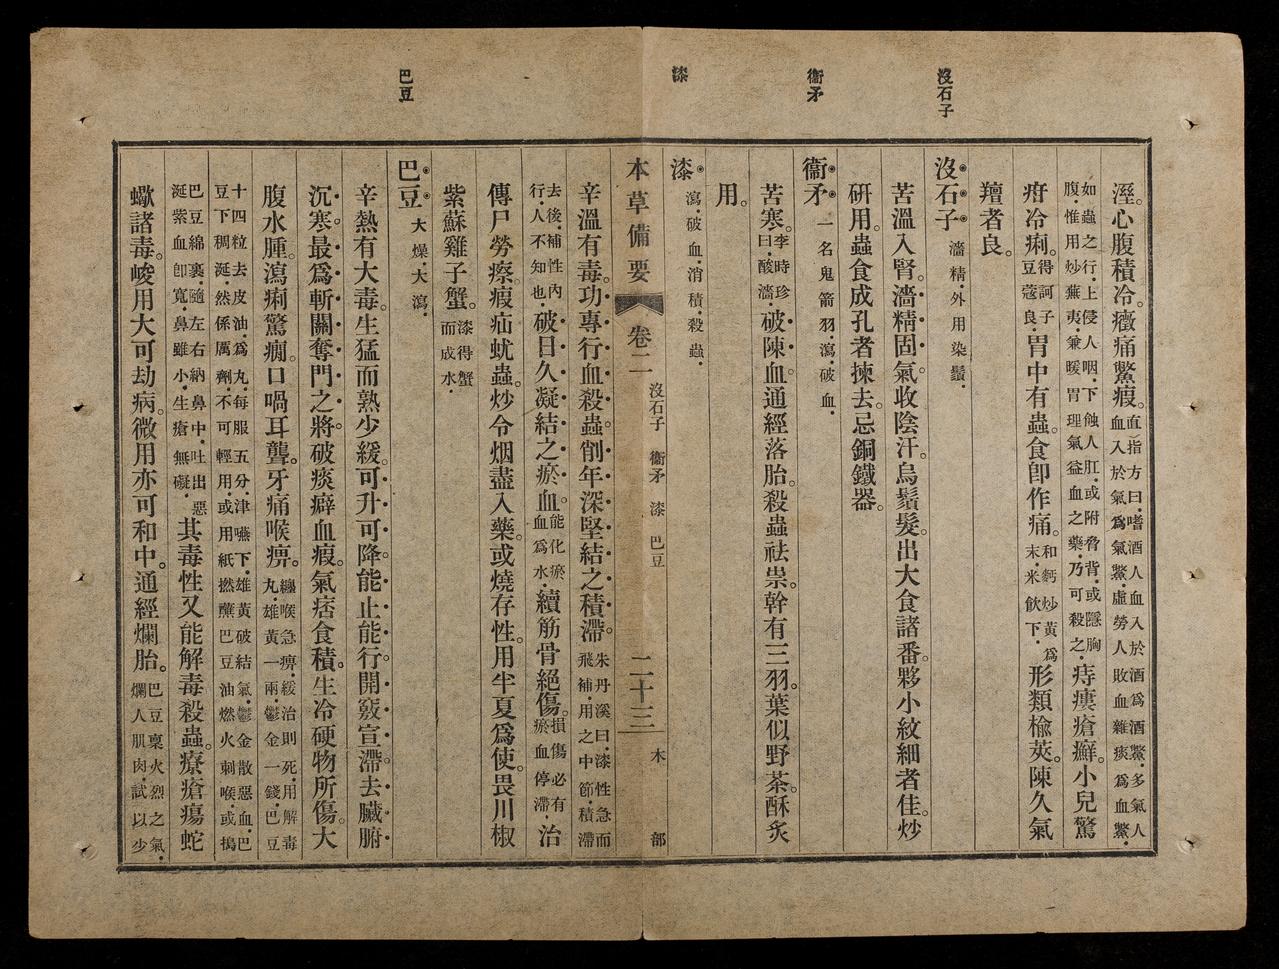 沒石子
衞矛
漆
巴豆
溼。心腹積冷。癥痛鱉瘕。直指方曰.嗜酒人血入於酒爲酒鱉.多氣人血入於氣爲氣鱉.虛勞人敗血雜痰爲血鱉.
如蟲之行.上侵人咽.下蝕人肛.或附脅背.或隱胸腹.惟用炒蕪荑.兼暖胃理氣益血之藥.乃可殺之.痔瘻瘡癬。小兒驚
疳冷痢。得訶子豆蔻良.胃中有蟲。食卽作痛。和麪炒黃爲末.米飲下.形類榆莢。陳久氣
羶者良。
沒石子 濇精.外用染鬚.
苦溫入腎。濇精固氣。收陰汗。烏鬚髮。出大食諸番。顆小紋細者佳。炒
研用。蟲食成孔者揀去。忌銅鐵器。
衞矛 一名鬼箭羽.瀉.破血.
苦寒。李時珍曰.酸濇.破陳血。通經落胎。殺蟲祛祟。幹有三羽。葉似野茶。酥炙
用。
漆 瀉.破血.消積.殺蟲.
本草備要 卷二 沒石子 衞矛 漆 巴豆 二十三 木部
辛溫有毒。功專行血殺蟲。削年深堅結之積滯。朱丹溪曰.漆性急而飛補.用之中節.積滯
去後.補性內行.人不知也.破日久凝結之瘀血。能化瘀血爲水.續筋骨絕傷。損傷必有瘀血停滯.治
傳尸勞瘵。瘕疝蚘蟲。炒令烟盡入藥。或燒存性。用半夏爲使。畏川椒
紫蘇雞子蟹。漆得蟹而成水.
巴豆 大燥.大瀉.
辛熱有大毒。生猛而熟少緩。可升可降。能止能行。開竅宣滯。去臟腑
沉寒。最爲斬關奪門之將。破痰癖血瘕。氣痞食積。生冷硬物所傷。大
腹水腫。瀉痢驚癇。口喎耳聾。牙痛喉痹。纏喉急痹.緩治則死.用解毒丸.雄黃一兩.鬱金一錢.巴豆
十四粒.去皮油爲丸.每服五分.津嚥下.雄黃破結氣.鬱金散惡血.巴豆下稠涎.然係厲劑.不可輕用.或用紙撚蘸巴豆油燃火刺喉.或搗
巴豆綿裹.隨左右納鼻中.吐出惡涎紫血卽寬.鼻雖小.生瘡無礙.其毒性又能解毒殺蟲。療瘡瘍蛇
蠍諸毒。峻用大可劫病。微用亦可和中。通經爛胎。巴豆稟火烈之氣.爛人肌肉.試以少